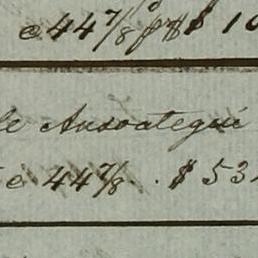 @ 44 7/8 $ 10
de Ansoategui
@ 44 7/8 . . $ 53